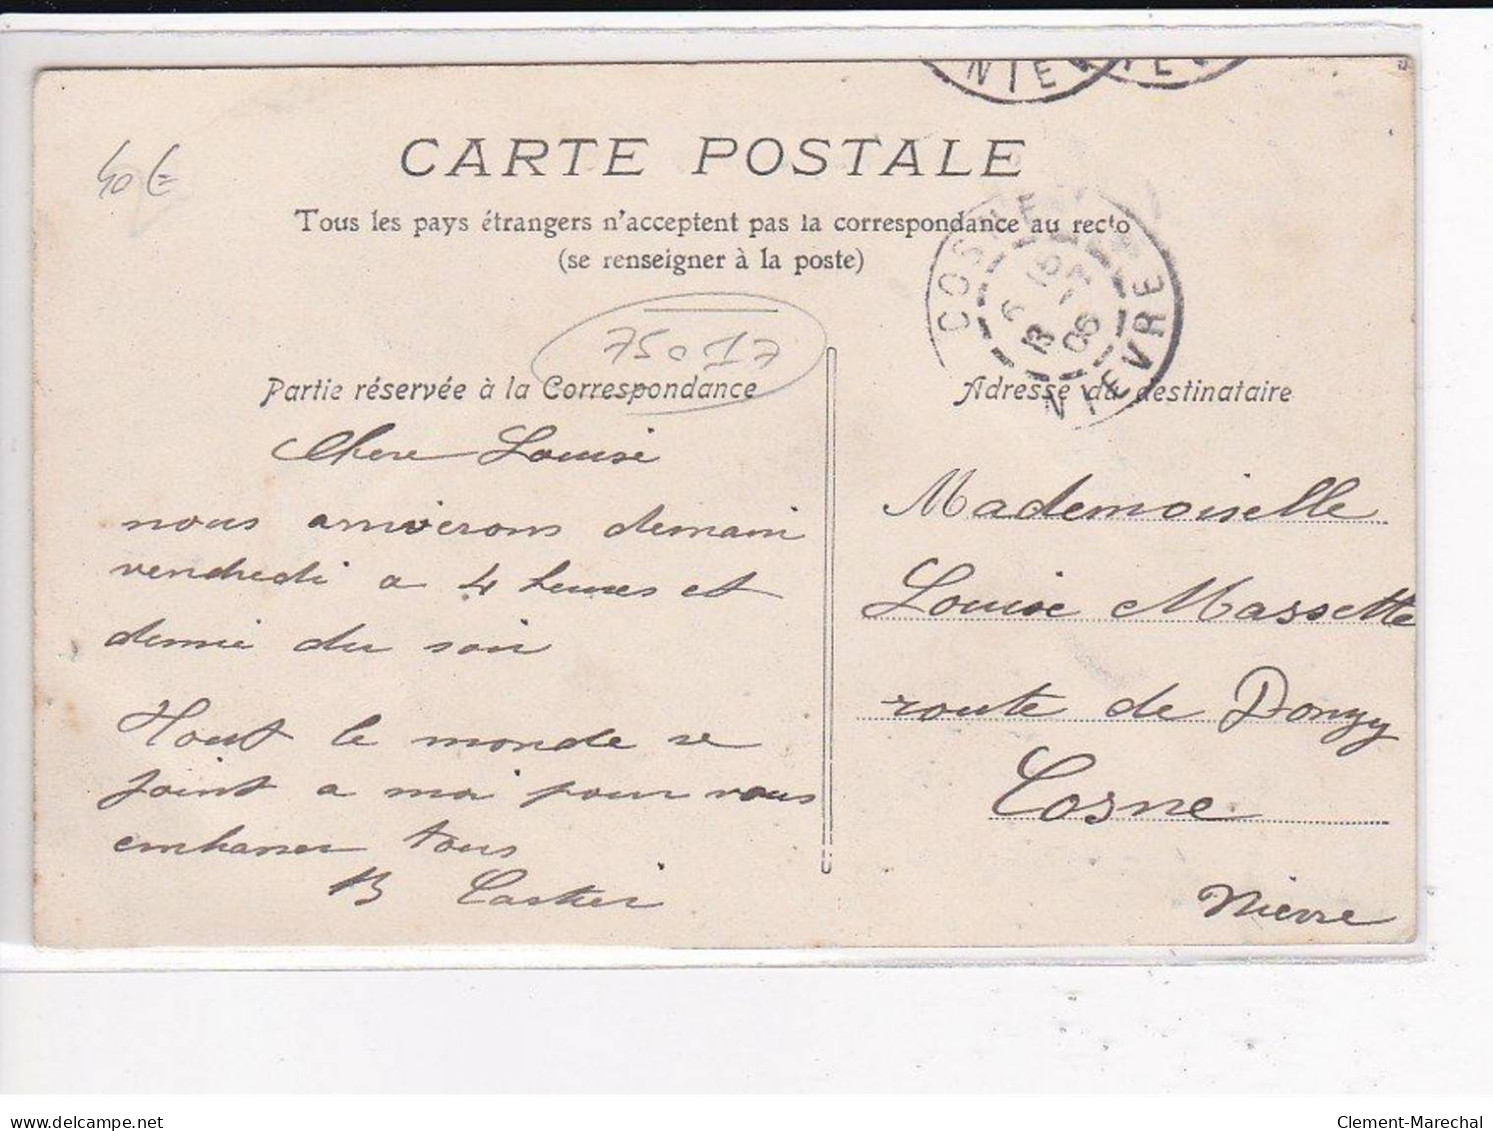 NIE
IE
40€
CARTE POSTALE
Tous les pays étrangers n'acceptent pas la correspondance au recto
(se renseigner à la poste)
COSNE
NIEVRE
06
75017
Partie réservée à la Correspondance
Adresse du destinataire
Chere Louise
nous arriverons demain
vendredi a 4 heures et
demie du soir
Tout le monde se
joint a moi pour vous
embrasser tous
B Castier
Mademoiselle
Louise Massette
route de Donzy
Cosne
Nievre
delcampe.net
Clement-Marechal